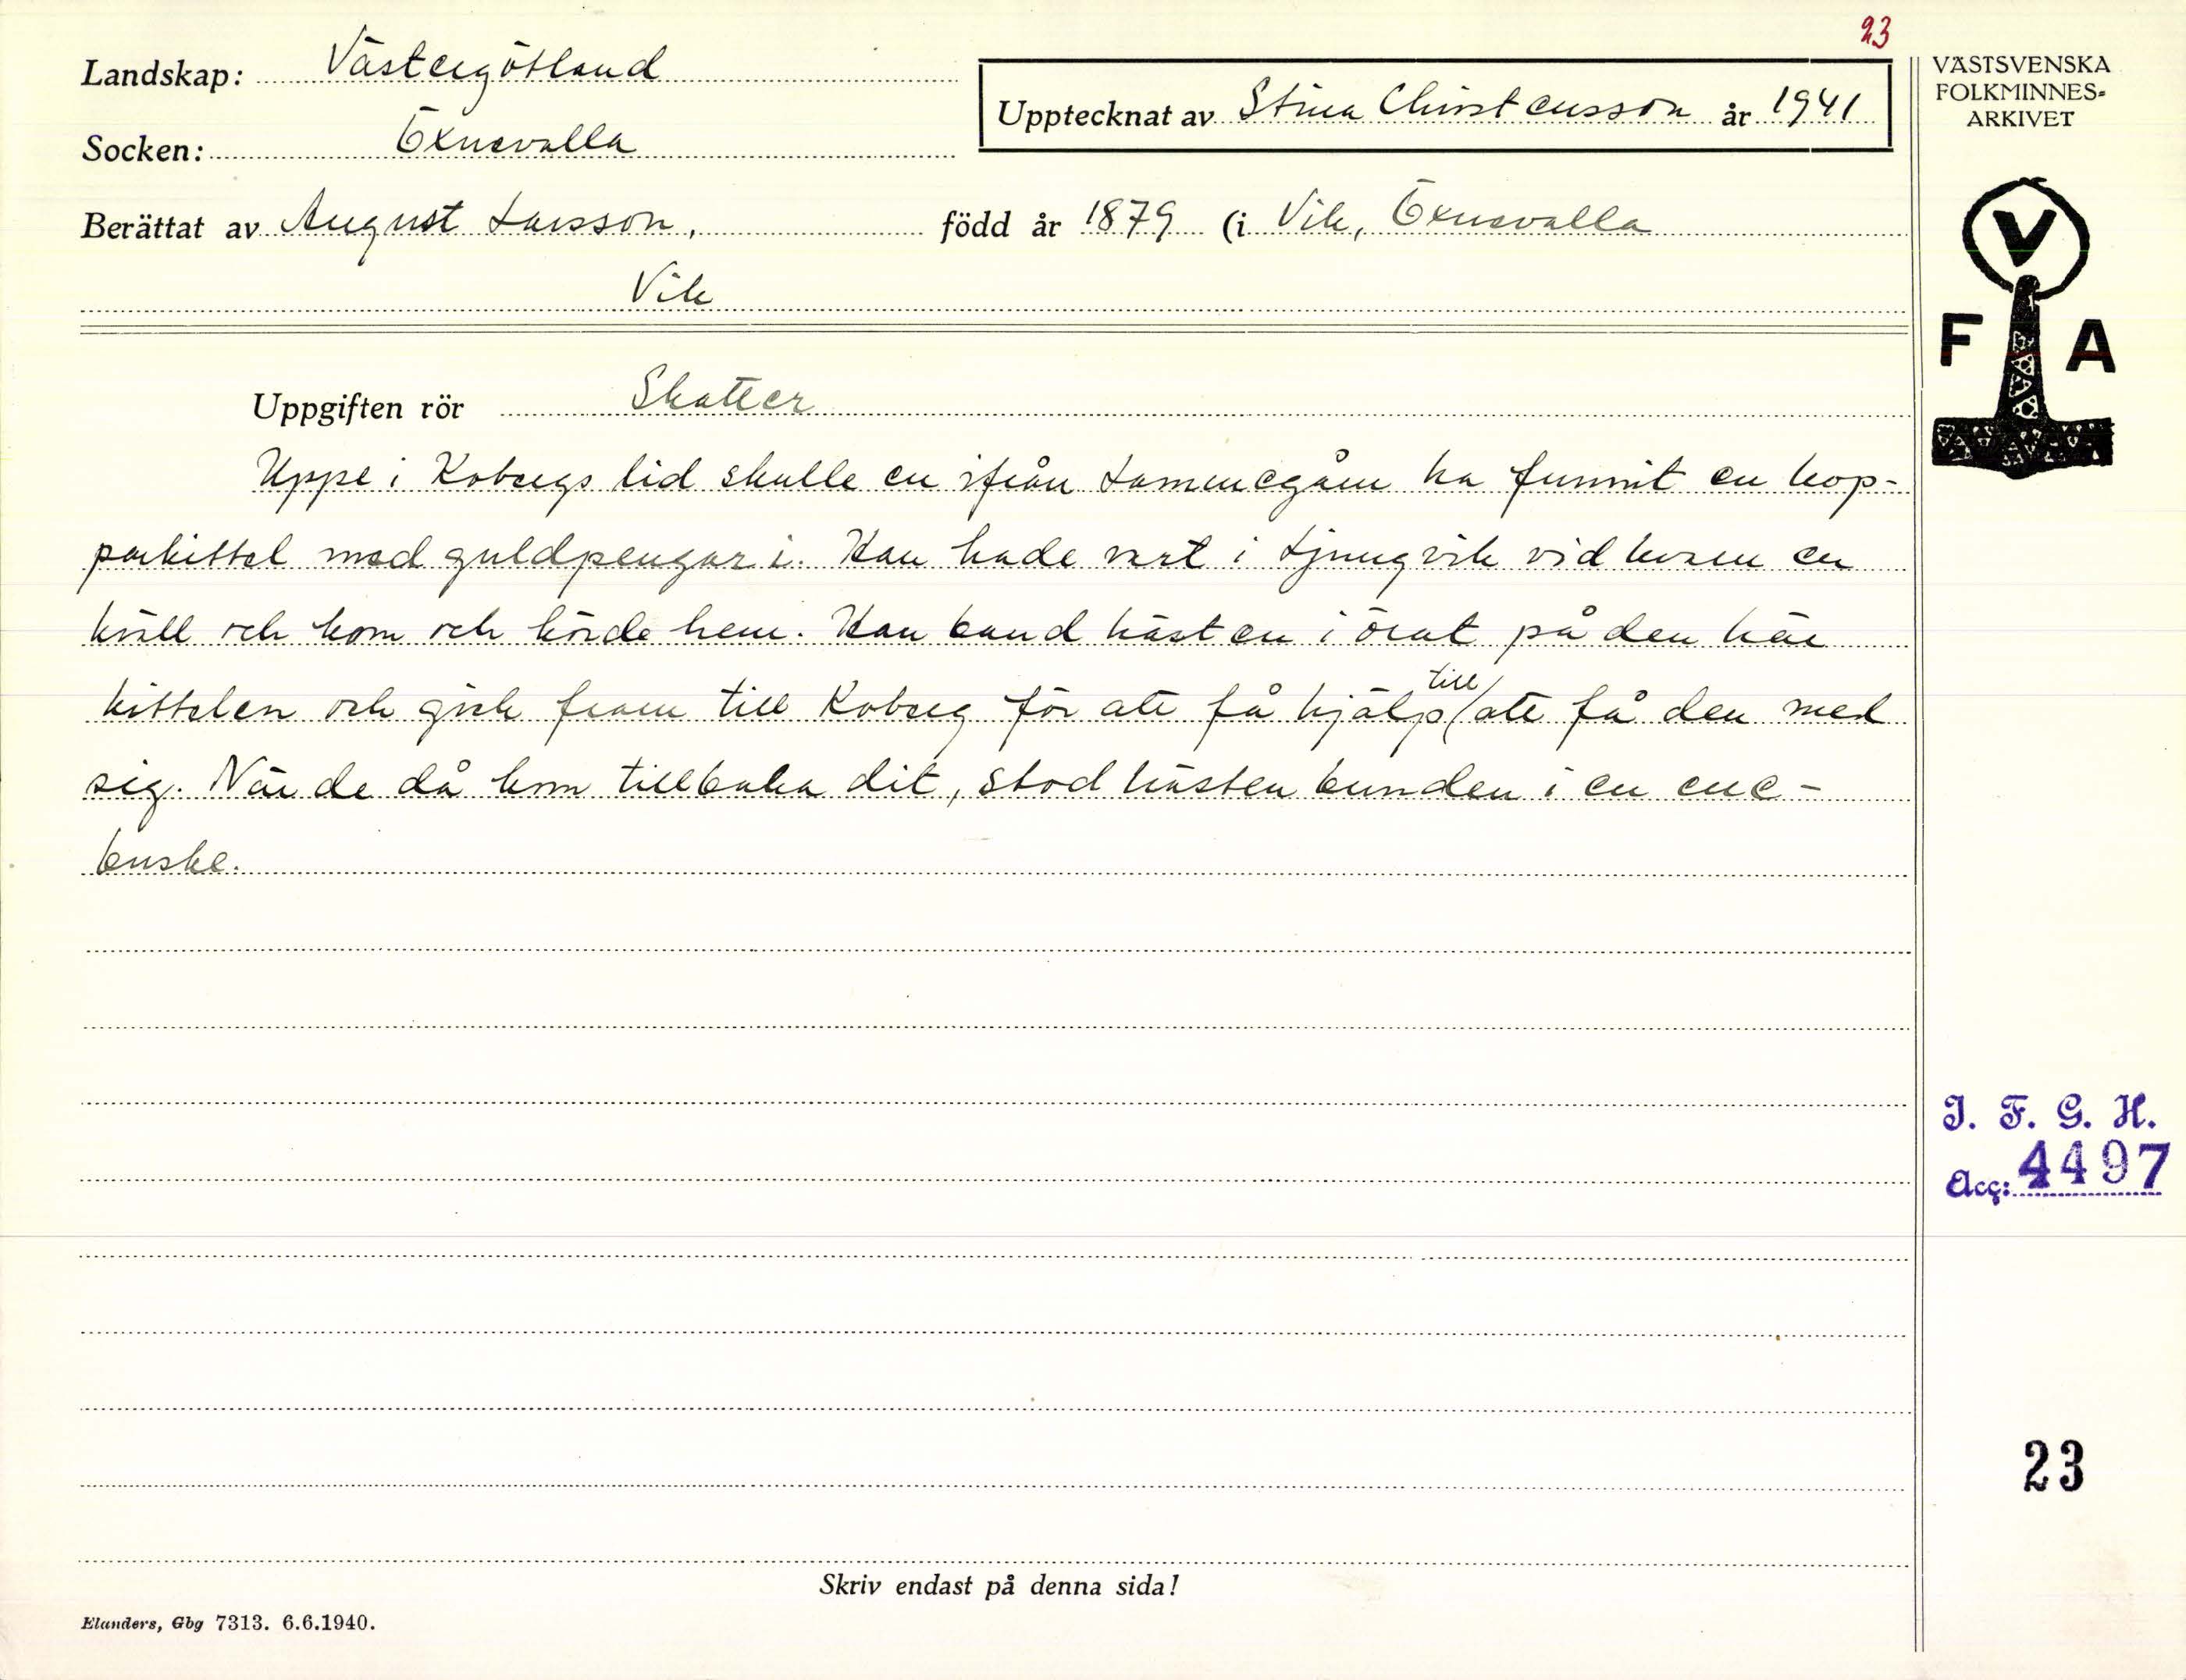 23
Landskap: Västergötland
Socken: Öxnevalla
Upptecknat av Stina Christensson år 1941
Berättat av August Larsson, född år 1879 (i Vik, Öxnevalla
Vik
Uppgiften rör Skatter
Uppe i Kobergs lid skulle en ifrån Lammegårn ha funnit en kop-
parkittel med guldpengar i. Han hade vart i Ljungvik vid kvarn en
kväll och kom och körde hem. Han band hästen i örat på den här
kittelen och gick fram till Koberg för att få hjälp till att få den med
sig. När de då kom tillbaka dit, stod hästen bunden i en ene-
buske.
Skriv endast på denna sida!
Elanders, Gbg 7313. 6.6.1940.
VÄSTSVENSKA
FOLKMINNES-
ARKIVET
V
F A
I. F. G. H.
Acc: 4497
23